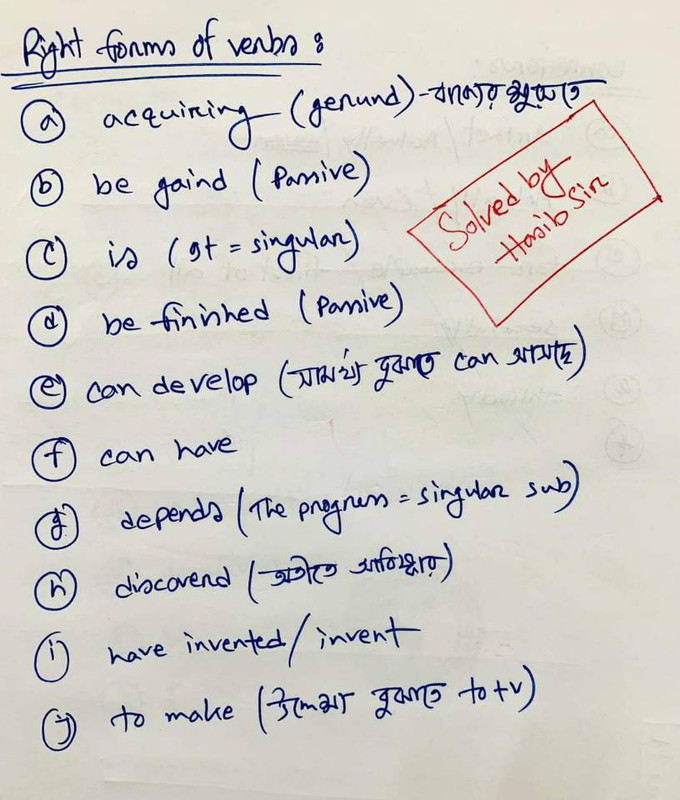 Right forms of verbs :
(a) acquiring (gerund) - বাক্যের শুরুতে
(b) be gaind (Passive)
Solved by
Hasib Sir
(c) is (It = singular)
(d) be finished (Passive)
(e) can develop (সামর্থ্য বুঝাতে can আসছে)
(f) can have
(g) depends (The progress = singular sub)
(h) discoverd (অতীতে আবিষ্কার)
(i) have invented/invent
(j) to make (উদ্দেশ্য বুঝাতে to+v)